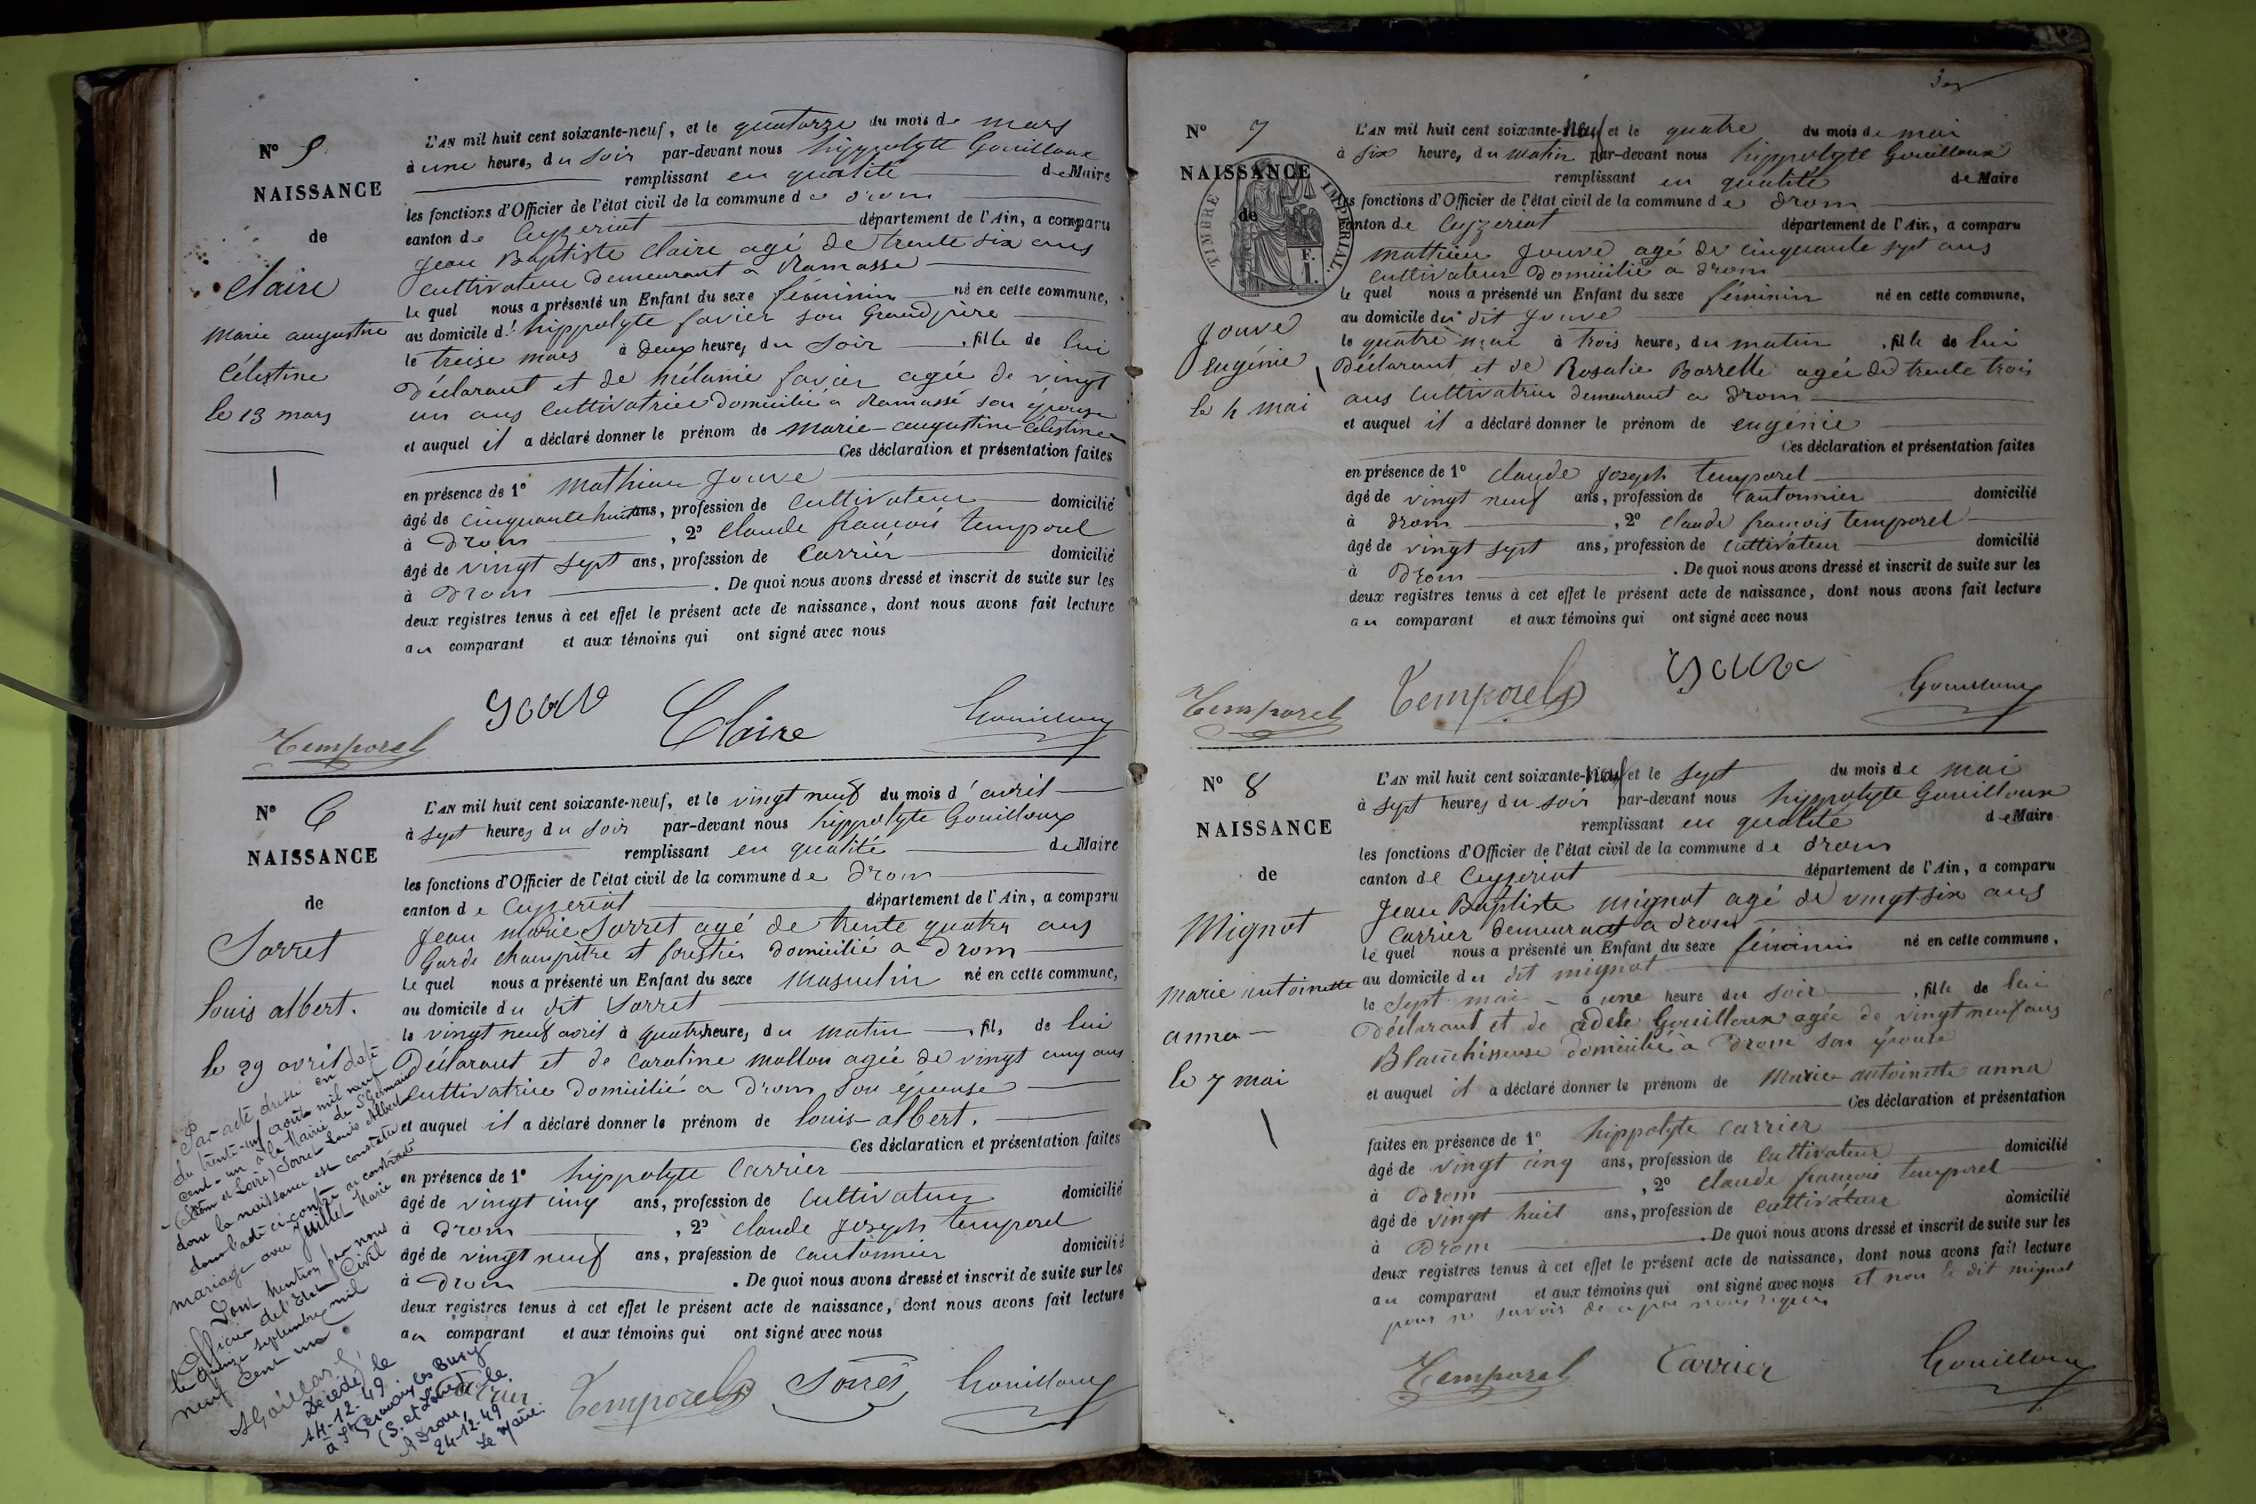 N° 5
NAISSANCE
de
Claire
Marie augustine
Célestine
le 13 mars
L'AN mil huit cent soixante-neuf, et le quatorze du mois de mars
à une heure, du soir par-devant nous hippolyte Gouilloux
remplissant en qualité de Maire
les fonctions d'Officier de l'état civil de la commune de drom
canton de Ceyzeriat département de l'Ain, a comparu
Jean Baptiste Claire agé de trente six ans
cultivateur demeurant a Ramasse
le quel nous a présenté un Enfant du sexe féminin né en cette commune,
au domicile d' hippolyte favier son Grand père
le treise mars à deux heure, du soir , fille de lui
Déclarant et de mélanie favier agée de vingt
un ans cultivatrice domicilié a Ramasse son épouse
et auquel il a déclaré donner le prénom de Marie-augustine Célestine
Ces déclaration et présentation faites
en présence de 1° Mathieu Jouve
âgé de cinquante huit ans, profession de cultivateur domicilié
à Drom , 2° claude françois temporel
âgé de vingt sept ans, profession de Carrier domicilié
à Drom . De quoi nous avons dressé et inscrit de suite sur les
deux registres tenus à cet effet le présent acte de naissance, dont nous avons fait lecture
au comparant et aux témoins qui ont signé avec nous
Temporel Jouve Claire Gouilloux
N° 6
NAISSANCE
de
Sorret
louis albert.
le 29 avril
L'AN mil huit cent soixante-neuf, et le vingt neuf du mois d'avril
à sept heures du soir par-devant nous hippolyte Gouilloux
remplissant en qualité de Maire
les fonctions d'Officier de l'état civil de la commune de drom
canton de Ceyzeriat département de l'Ain, a comparu
Jean Marie Sorret agé de trente quatre ans
Garde champitre et forestier domicilié a Drom
le quel nous a présenté un Enfant du sexe masculin né en cette commune,
au domicile du dit Sorret
le vingt neuf avril à quatre heure, du matin , fils de lui
Déclarant et de Caroline mollon agée de vingt cinq ans
cultivatrice domicilié a Drom son épouse
et auquel il a déclaré donner le prénom de louis-albert.
Ces déclaration et présentation faites
en présence de 1° hippolyte Carrier
âgé de vingt cinq ans, profession de cultivateur domicilié
à drom , 2° claude Joseph temporel
âgé de vingt neuf ans, profession de cantonnier domicilié
à drom . De quoi nous avons dressé et inscrit de suite sur les
deux registres tenus à cet effet le présent acte de naissance, dont nous avons fait lecture
au comparant et aux témoins qui ont signé avec nous
Par acte dressé en date
du trente-un août mil neuf
cent-un à la Mairie de St Germain
(Saône et Loire) Sorret Louis Albert
dont la naissance est constatée
dans l'acte ci-contre a contracté
mariage avec Marie
Dont mention par nous
Officier de l'Etat Civil
le quinze septembre mil
neuf cent un.
Décédé le
14-12-49
à St Germain les Buxy
(S. et Loire)
A Drom, le
24-12-49
Le Maire.
Carrier Temporel Sorret Gouilloux
N° 7
NAISSANCE
de
TIMBRE IMPERIAL.
F.
1.
Jouve
eugénie
le 4 mai
L'AN mil huit cent soixante-neuf et le quatre du mois de mai
à six heure, du matin par-devant nous hippolyte Gouilloux
remplissant en qualité de Maire
les fonctions d'Officier de l'état civil de la commune de drom
canton de Ceyzeriat département de l'Ain, a comparu
Mathieu Jouve agé de cinquante sept ans
cultivateur domicilié a drom
le quel nous a présenté un Enfant du sexe féminin né en cette commune,
au domicile du dit Jouve
le quatre mai à trois heure, du matin , fille de lui
Déclarant et de Rosalie Borrelle agée de trente trois
ans cultivatrice demeurant a Drom
et auquel il a déclaré donner le prénom de eugénie
Ces déclaration et présentation faites
en présence de 1° claude Joseph temporel
âgé de vingt neuf ans, profession de Cantonnier domicilié
à drom , 2° claude françois temporel
âgé de vingt sept ans, profession de cultivateur domicilié
à Drom . De quoi nous avons dressé et inscrit de suite sur les
deux registres tenus à cet effet le présent acte de naissance, dont nous avons fait lecture
au comparant et aux témoins qui ont signé avec nous
Temporel Temporel Jouve Gouilloux
N° 8
NAISSANCE
de
Mignot
marie antoinette
anna
le 7 mai
L'AN mil huit cent soixante-neuf et le sept du mois de mai
à sept heures du soir par-devant nous hippolyte Gouilloux
remplissant en qualité de Maire
les fonctions d'Officier de l'état civil de la commune de drom
canton de Ceyzeriat département de l'Ain, a comparu
Jean Baptiste mignot agé de vingt six ans
Carrier demeurant a drom
le quel nous a présenté un Enfant du sexe féminin né en cette commune,
au domicile du dit mignot
le sept mai à une heure du soir , fille de lui
Déclarant et de adele Gouilloux agée de vingt neuf ans
Blanchisseuse domicilié a Drom son épouse
et auquel il a déclaré donner le prénom de Marie antoinette anna
Ces déclaration et présentation
faites en présence de 1° hippolyte Carrier
âgé de vingt cinq ans, profession de cultivateur domicilié
à Drom , 2° claude françois temporel
âgé de vingt huit ans, profession de cultivateur domicilié
à Drom . De quoi nous avons dressé et inscrit de suite sur les
deux registres tenus à cet effet le présent acte de naissance, dont nous avons fait lecture
au comparant et aux témoins qui ont signé avec nous et non le dit mignot
pour ne savoir de ce par nous requis
Temporel Carrier Gouilloux